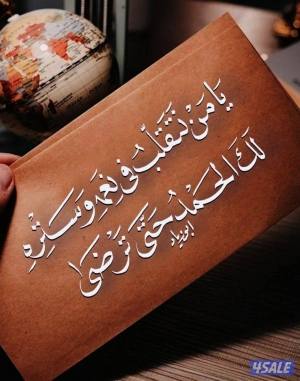 يَا مَنْ نَتَقَلَّبُ فِي نِعَمِهِ وَسَتْرِهِ
لَكَ الحَمْدُ حَتَّىٰ تَرْضَىٰ
ابو زياد
4SALE